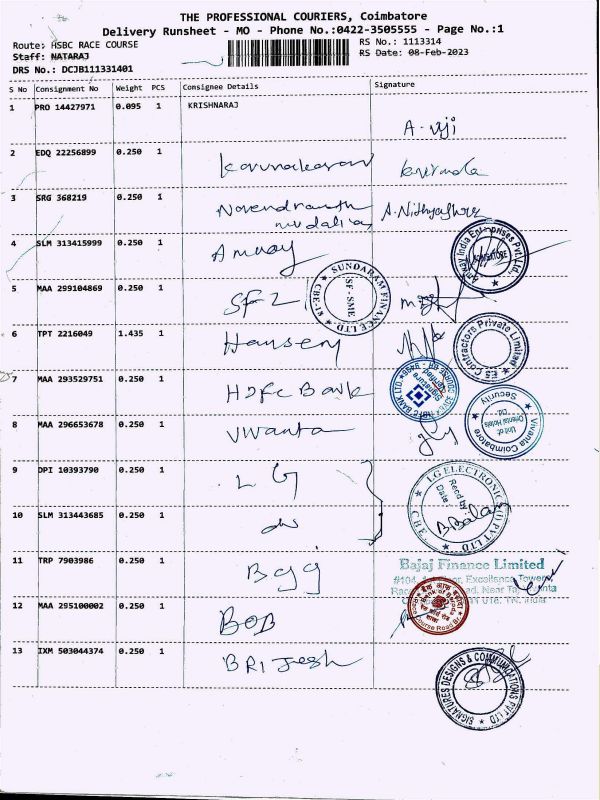 THE PROFESSIONAL COURIERS, Coimbatore
Delivery Runsheet - MO - Phone No.:0422-3505555 - Page No.:1
Route: HSBC RACE COURSE
RS No.: 1113314
Staff: NATARAJ
RS Date: 08-Feb-2023
DRS No.: DCJB111331401
S No Consignment No Weight PCS Consignee Details Signature
1 PRO 14427971 0.095 1 KRISHNARAJ
A. viji
2 EDQ 22256899 0.250 1 Karunakaran
3 SRG 368219 0.250 1 Narendranath A. Nithyashree
mudaliar
4 SLM 313415999 0.250 1 Amway
Amway India Enterprises Pvt. Ltd.
COIMBATORE
SUNDARAM FINANCE LTD
SF-SME
5 MAA 299104869 0.250 1 SF-2
6 TPT 2216049 1.435 1
ES Contractors Private Limited
7 MAA 293529751 0.250 1 HDFC Bank
HDFC BANK LTD.
8 MAA 296653678 0.250 1 Vivanta
Vivanta Coimbatore
Unit of
Oriental Hotels
Ltd.
Security
9 DPI 10393790 0.250 1 LG
LG ELECTRONICS (I) PVT LTD
CBE
Recd by
Date
B. Balan
10 SLM 313443685 0.250 1 do
11 TRP 7903986 0.250 1
Bajaj Finance Limited
12 MAA 295100002 0.250 1 BOB
Bank of Baroda
Race Course Road Br.
13 IXM 503044374 0.250 1 BRIJesh
SIGNATURES DESIGNS & COMMUNICATIONS PVT LTD